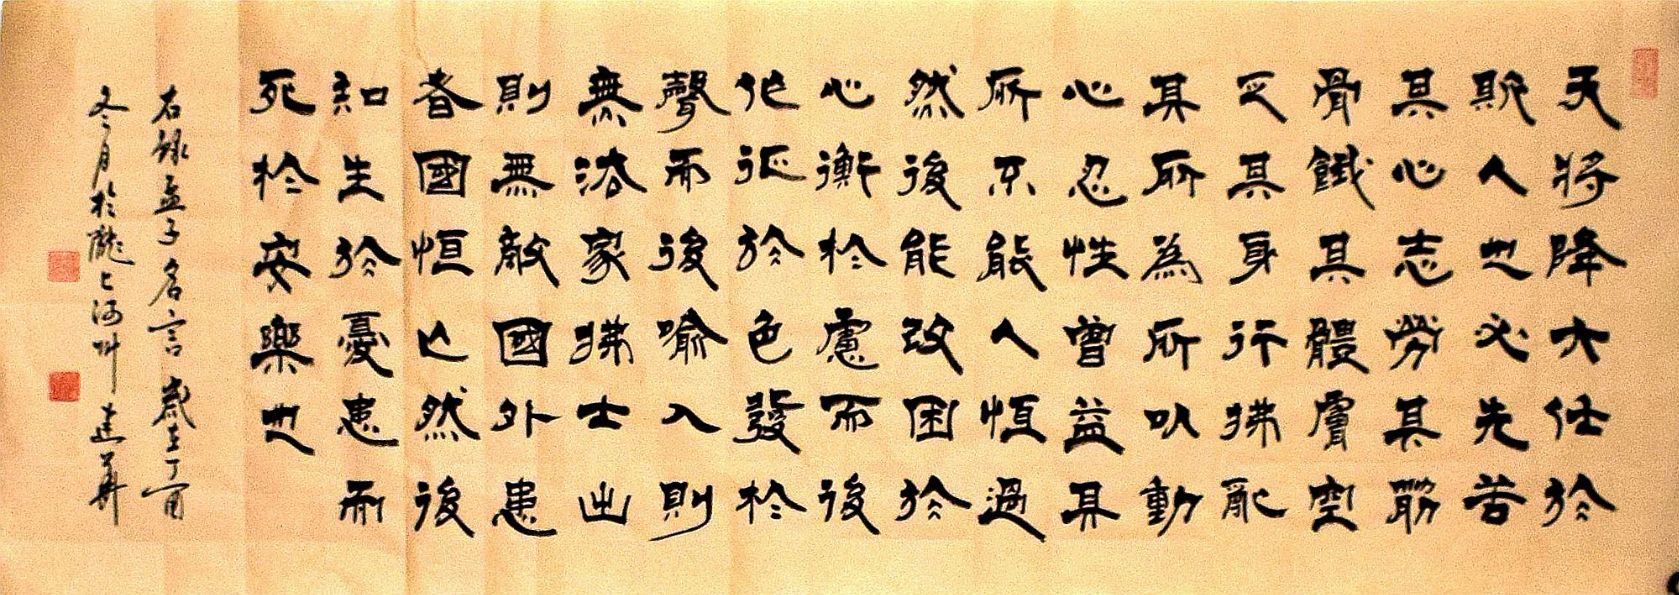 天將降大任於
斯人也必先苦
其心志勞其筋
骨餓其體膚空
乏其身行拂亂
其所為所以動
心忍性曾益其
所不能人恒過
然後能改困於
心衡於慮而後
作征於色發於
聲而後喻入則
無法家拂士出
則無敵國外患
者國恒亡然後
知生於憂患而
死於安樂也
右録孟子名言歲在丁酉
冬月於隴上河州建華